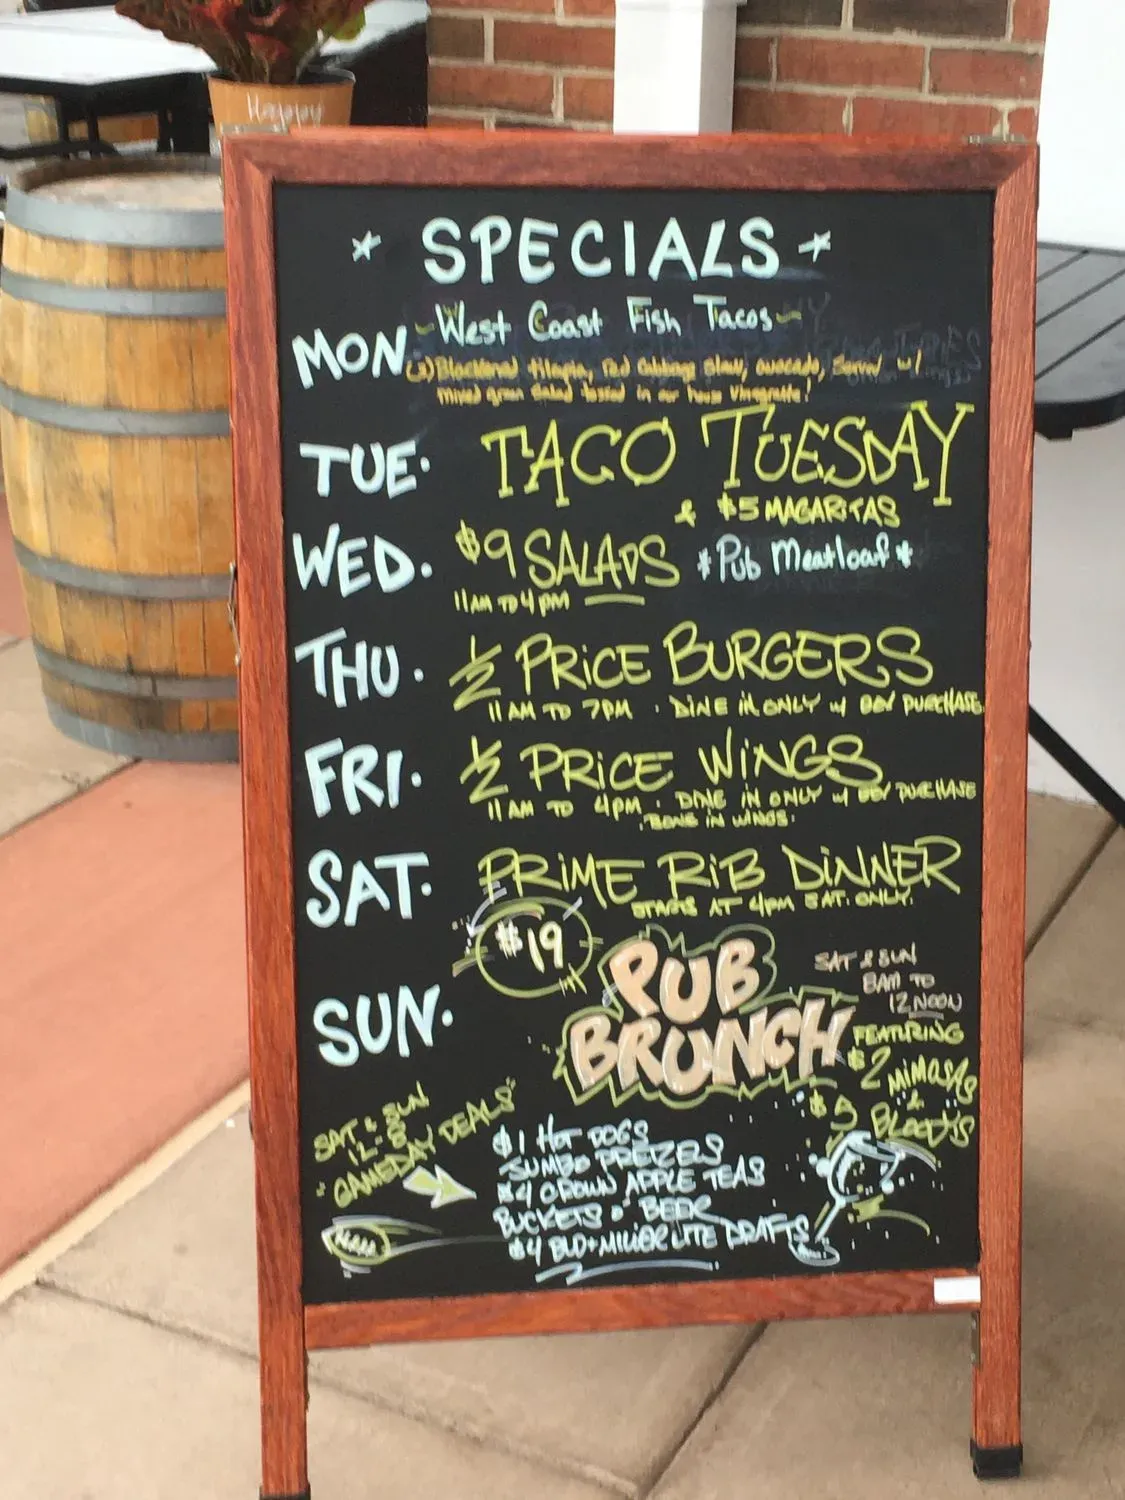 Happy
* SPECIALS *
MON. ~West Coast Fish Tacos~
(3) Blackened tilapia, red Cabbage Slaw, avocado, Served w/
mixed green Salad tossed in our house Vinegrette!
TUE. TACO TUESDAY
& $5 MAGARITAS
WED. $9 SALADS *Pub Meatloaf*
11AM TO 4PM
THU. 1/2 PRICE BURGERS
11AM TO 7PM · DINE IN ONLY w/ BEV PURCHASE
FRI. 1/2 PRICE WINGS
11AM TO 4PM · DINE IN ONLY w/ BEV PURCHASE
·BONE IN WINGS·
SAT. PRIME RIB DINNER
STARTS AT 4PM SAT. ONLY.
$19
SUN. PUB
BRUNCH
SAT & SUN
8AM TO
12 NOON
FEATURING
$2 MIMOSAS
&
$5 BLOODYS
SAT & SUN
12-8
"GAMEDAY DEALS"
$1 HOT DOGS
JUMBO PRETZELS
$4 CROWN APPLE TEAS
BUCKETS O' BEER
$4 BUD+MILLER LITE DRAFTS